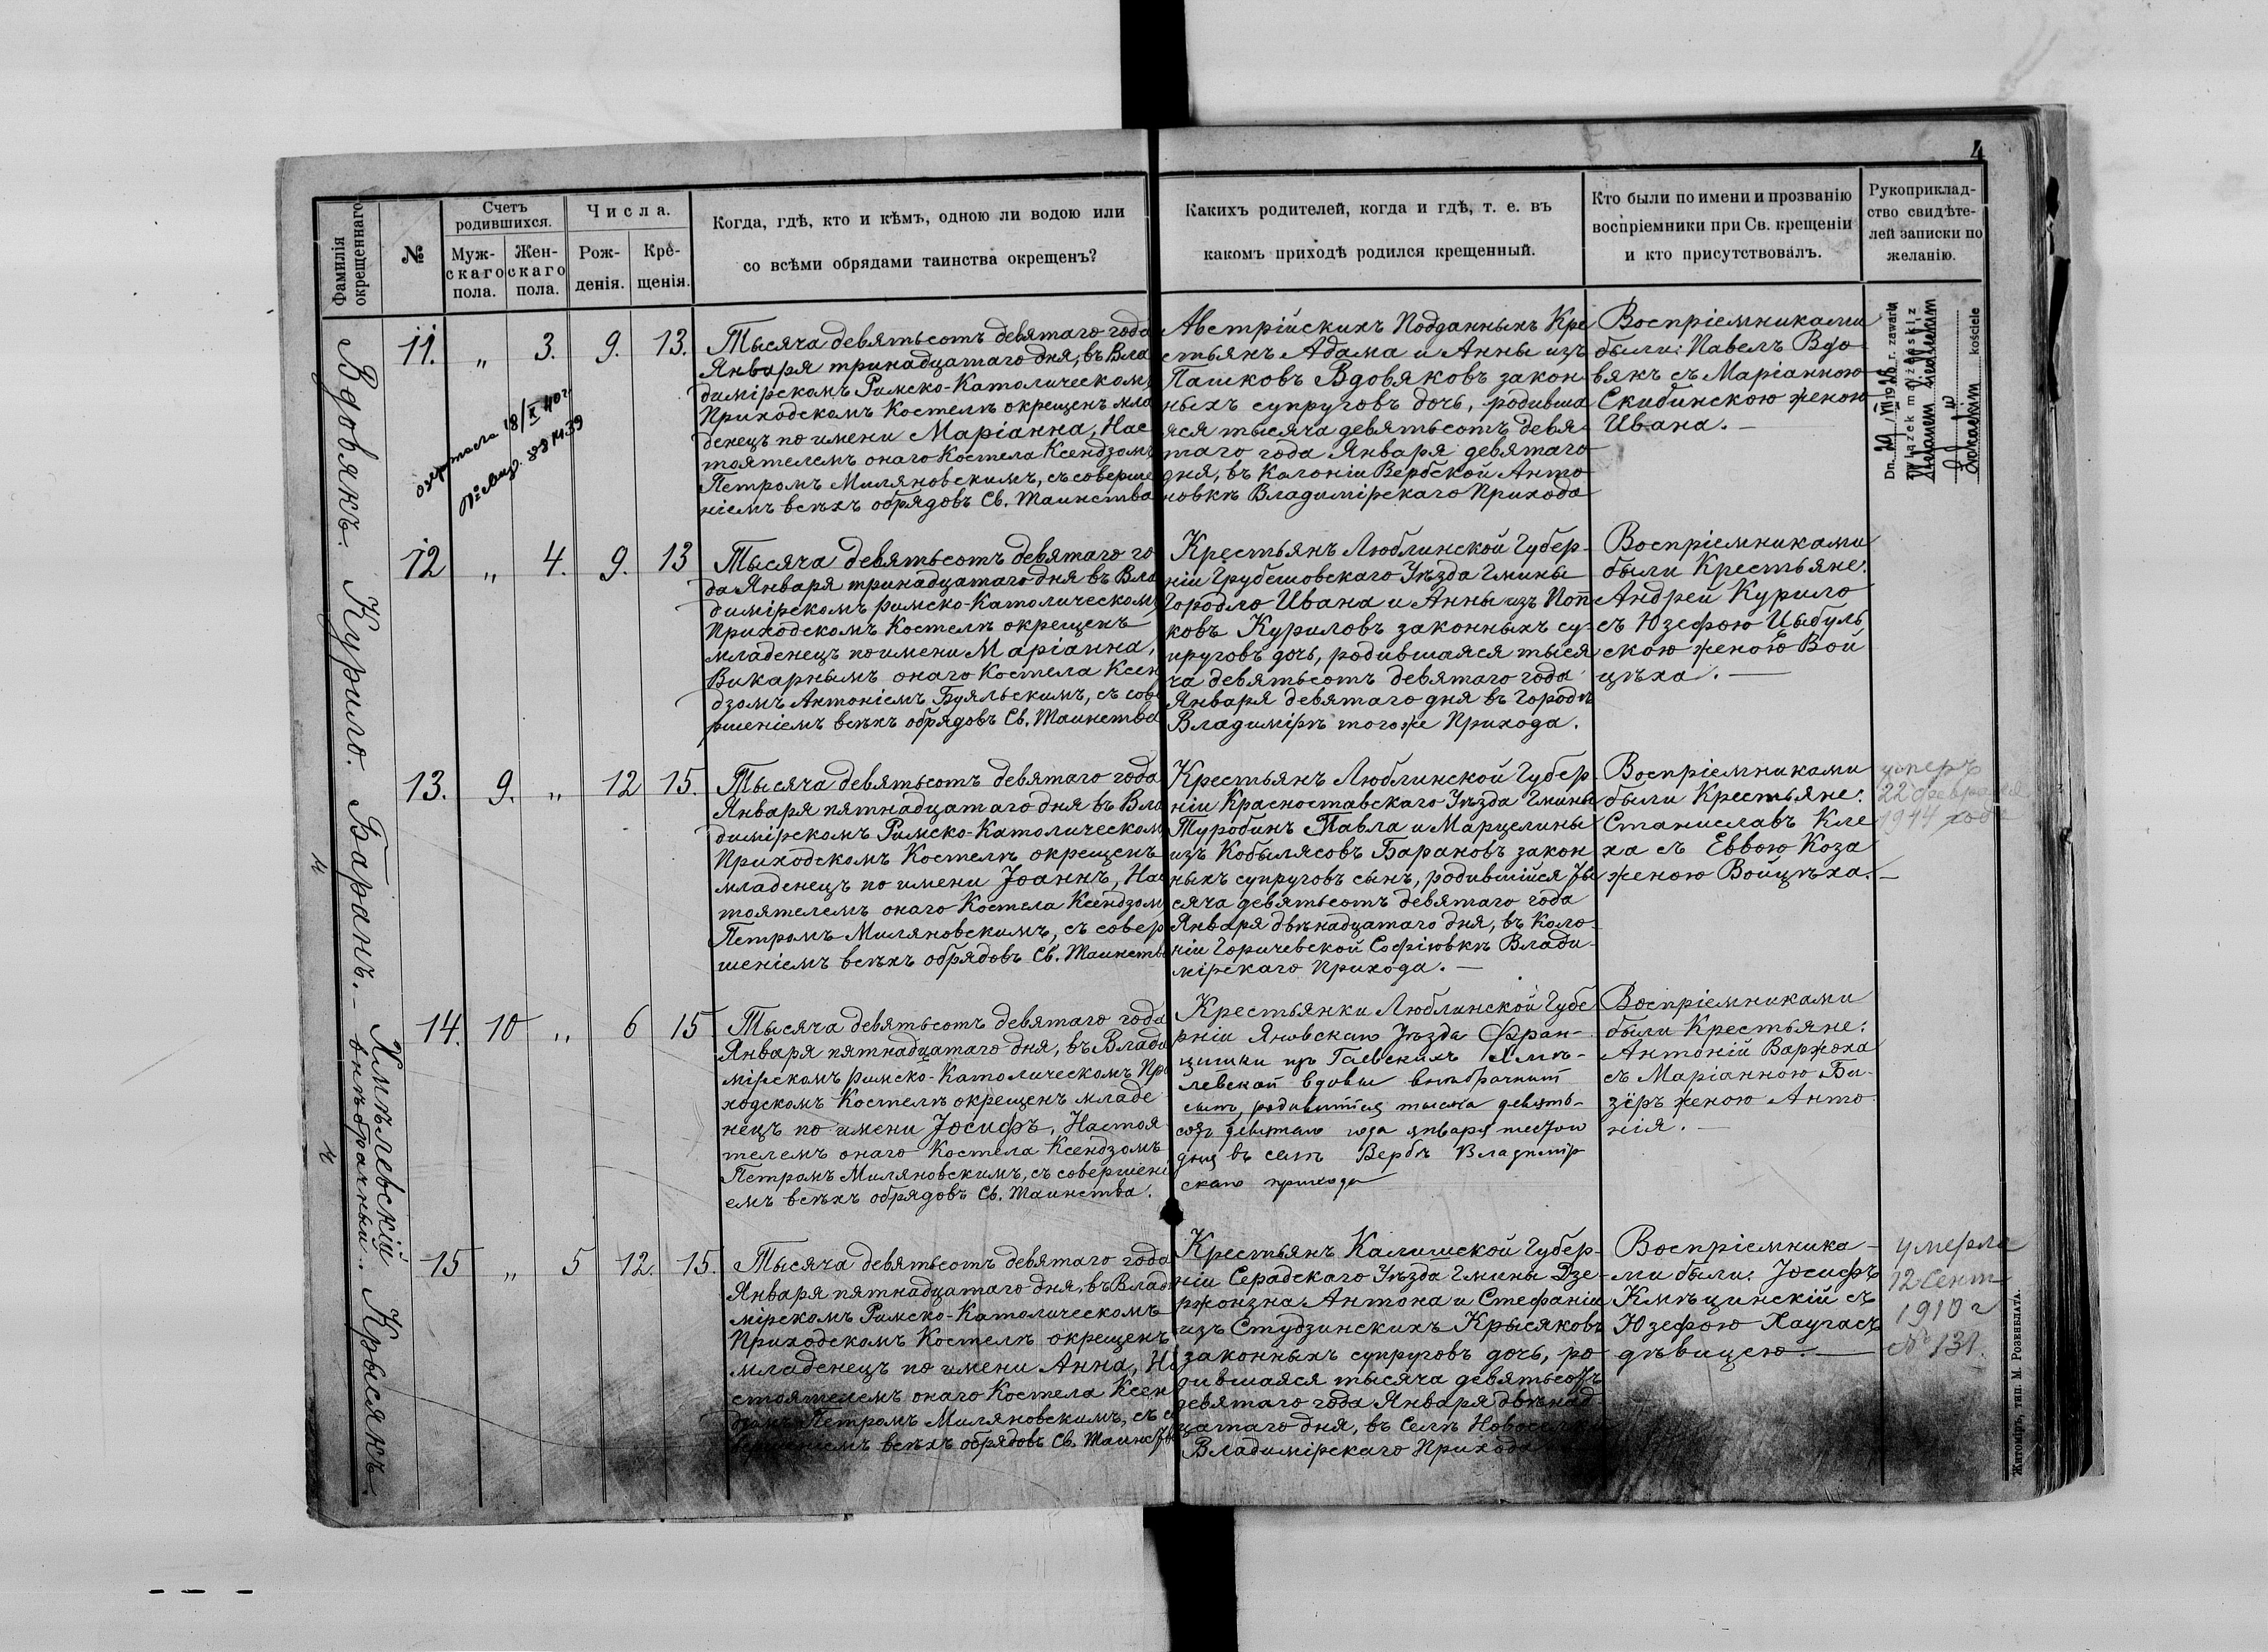 4
Фамилія окрещеннаго
№
Счетъ родившихся.
Муж-
скаго
пола.
Жен-
скаго
пола.
Числа.
Рож-
денія.
Кре-
щенія.
Когда, гдѣ, кто и кѣмъ, одною ли водою или
со всѣми обрядами таинства окрещенъ?
Какихъ родителей, когда и гдѣ, т. е. въ
какомъ приходѣ родился крещенный.
Кто были по имени и прозванію
воспріемники при Св. крещеніи
и кто присутствовалъ.
Рукоприклад-
ство свидѣте-
лей записки по
желанію.
Вдовякъ.
11. „ 3. 9. 13.
Тысяча девятьсотъ девятаго года
Января тринадцатаго дня, въ Вла
димірскомъ Римско-Католическомъ
Приходскомъ Костелѣ окрещенъ мла
денецъ по имени Маріанна, Нас
тоятелемъ онаго Костела Ксендзомъ
Петромъ Миляновскимъ, съ соверше
ніемъ всѣхъ обрядовъ Св. Таинства
Австрійскихъ Подданныхъ Кре
стьянъ Адама и Анны изъ
Пашковъ Вдовяковъ закон
ныхъ супруговъ дочь, родивша
яся тысяча девятьсотъ девя
таго года Января девятаго
дня, въ Колоніи Вербской Анто
новкѣ Владимірскаго Прихода
Воспріемниками
были: Павелъ Вдо
вякъ съ Маріанною
Скибинскою женою
Ивана. —
Dn. r. zawarła
związek małżeński z
kościele
Курило.
12 „ 4. 9. 13
Тысяча девятьсотъ девятаго го
да Января тринадцатаго дня въ Вла
димірскомъ Римско-Католическомъ
Приходскомъ Костелѣ окрещенъ
младенецъ по имени Маріанна,
Викарнымъ онаго Костела Ксен
дзомъ Антоніемъ Буяльскимъ, съ сове
ршеніемъ всѣхъ обрядовъ Св. Таинства
Крестьянъ Люблинской Губер-
ніи Грубешовскаго Уѣзда Гмины
Городло Ивана и Анны изъ Поп
ковъ Куриловъ законныхъ су-
пруговъ дочь, родившаяся тыся
ча девятьсотъ девятаго года
Января девятаго дня въ Городѣ
Владимірѣ того же Прихода.
Воспріемниками
были Крестьяне:
Андрей Курило
съ Юзефою Цыбуль
скою женою Вой
цѣха. —
Баранъ. —
13. 9. „ 12 15.
Тысяча девятьсотъ девятаго года
Января пятнадцатаго дня въ Вла
димірскомъ Римско-Католическомъ
Приходскомъ Костелѣ окрещенъ
младенецъ по имени Іоаннъ, Нас
тоятелемъ онаго Костела Ксендзомъ
Петромъ Миляновскимъ, съ совер
шеніемъ всѣхъ обрядовъ Св. Таинства
Крестьянъ Люблинской Губер-
ніи Красноставскаго Уѣзда Гмины
Туробинъ Павла и Марцелины
изъ Кобылясовъ Барановъ закон
ныхъ супруговъ сынъ, родившійся ты
сяча девятьсотъ девятаго года
Января двѣнадцатаго дня, въ Коло-
ніи Горичевской Софіювкѣ Влади-
мірскаго Прихода. —
Воспріемниками
были Крестьяне:
Станиславъ Кле
ха съ Еввою Коза
женою Войцѣха. —
умеръ
22 февраля
1944 года
Хмѣлевскій
внѣбрачный
14. 10 „ 6 15
Тысяча девятьсотъ девятаго года
Января пятнадцатаго дня, въ Влади
мірскомъ Римско-Католическомъ При
ходскомъ Костелѣ окрещенъ младе
нецъ по имени Іосифъ, Настоя
телемъ онаго Костела Ксендзомъ
Петромъ Миляновскимъ, съ совершені
емъ всѣхъ обрядовъ Св. Таинства.
Крестьянки Люблинской Губе
рніи Яновскаго Уѣзда Фран-
цишки изъ Гаевскихъ Хмѣ-
левской вдовы внѣбрачный
сынъ, родившійся тысяча девять-
сотъ девятаго года января шестого
дня въ селѣ Вербѣ Владимір
скаго прихода
Воспріемниками
были Крестьяне:
Антоній Варжоха
съ Маріанною Би-
зёръ женою Анто
нія. —
Крысякъ.
15 „ 5 12. 15.
Тысяча девятьсотъ девятаго года
Января пятнадцатаго дня, въ Влади
мірскомъ Римско-Католическомъ
Приходскомъ Костелѣ окрещенъ
младенецъ по имени Анна, На
стоятелемъ онаго Костела Ксен
дзомъ Петромъ Миляновскимъ, съ со
вершеніемъ всѣхъ обрядовъ Св. Таинства
Крестьянъ Калишской Губер-
ніи Серадскаго Уѣзда Гмины Дзе-
ржонзна Антона и Стефаніи
изъ Студзинскихъ Крысяковъ
законныхъ супруговъ дочь, ро-
дившаяся тысяча девятьсотъ
девятаго года Января двѣнад
цатаго дня, въ Селѣ
Владимірскаго Прихода
Воспріемника-
ми были: Іосифъ
Кмѣцинскій съ
Юзефою Лаугасъ
дѣвицею. —
умерла
12 Сент
1910 г
№ 131.
Житоміръ, тип. М. Розенблата.